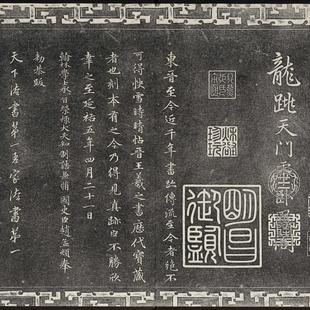 龍跳天門
明昌御覽
東晉至今近千年書迹傳流至今者絕不
可得快雪時晴帖晉王羲之書歷代寶藏
者也刻本有之今乃得見真跡臣不勝欣
幸之至延祐五年四月二十一日
翰林學士承旨榮祿大夫知制誥兼修國史臣趙孟頫奉
勅恭跋
天下法書第一吾家法書第一